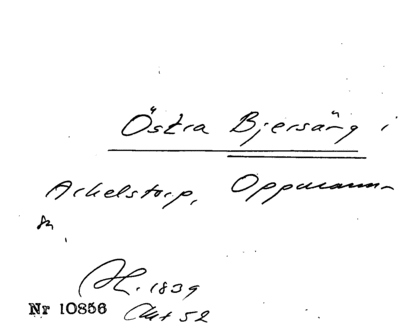 Östra Bjersäng i
Arkelstorp, Oppmanna-
sn
H. 1839
Nr 10856 Akt 52